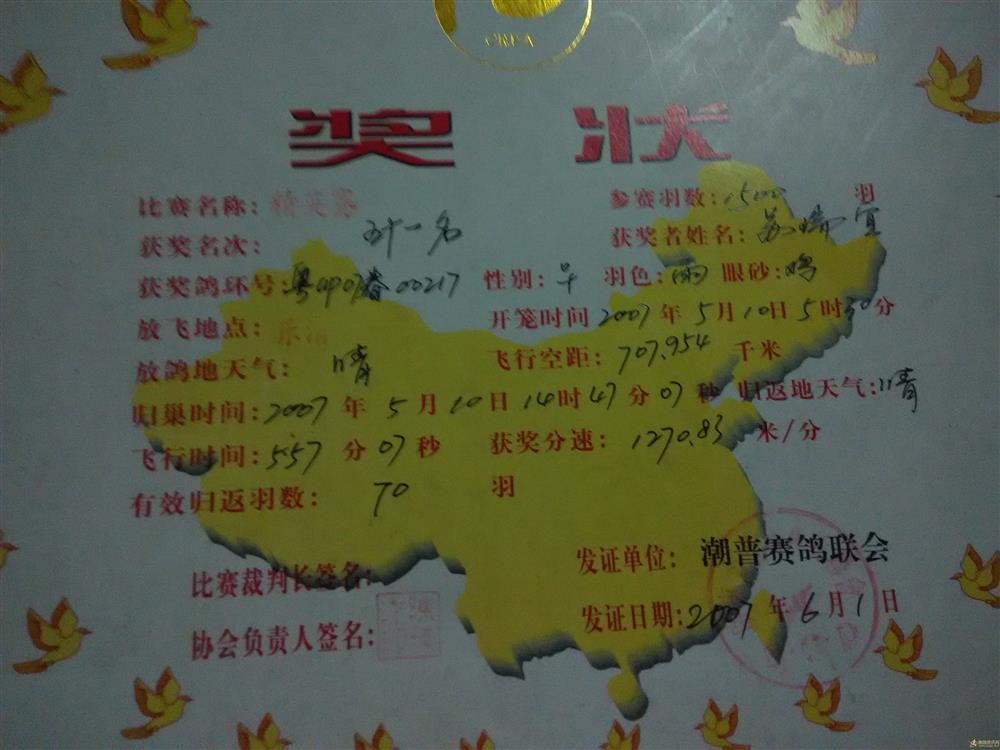 奖 状
比赛名称:精英赛 参赛羽数:1500 羽
获奖名次: 卅一名 获奖者姓名:苏瑞宜
获奖鸽环号:粤0407春00217 性别: 羽色:雨 眼砂:鸡
放飞地点: 乐清 开笼时间 2007年5月10日5时30分
放鸽地天气: 晴 飞行空距: 707.954 千米
归巢时间:2007年5月10日14时47分07秒 归返地天气:晴
飞行时间:557分07秒 获奖分速: 1270.83 米/分
有效归返羽数: 70 羽
比赛裁判长签名: 发证单位: 潮普赛鸽联会
协会负责人签名: 发证日期:2007年6月1日